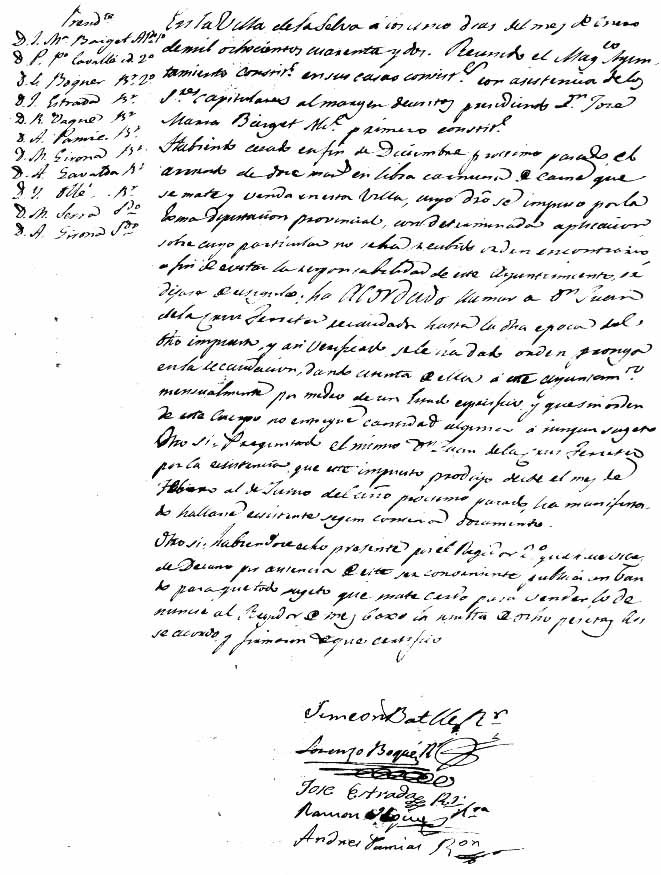 D. J. Mª Barget Al.e 1º
D. P. Pº Cavallé id. 2º
D. L. Boquer Rr. 2º
D. J. Estrada Rr.
D. R. Vaqué Rr.
D. A. Pamie. Rr.
D. M. Girona Rr.
D. A. Gavalda Rr.
D. Y. Ollé. Rr.
D. M. Serra Sdo
D. A. Girona Sdo
En la Villa de la Selva à los uno dias del mes de Enero
de mil ochocientos cuarenta y dos. Reunido el Mag.co Ayun
tamiento constit.l en sus casas consist.s con asistencia de los
S.res Capitulares al margen descritos presidiendo D.n José
Maria Barget Al.e primero constit.l
Habiendo cesado en fin de Diciembre prossimo pasado, el
arriendo de doce mar.s en libra carnicera de carne que
se mate y venda en esta Villa, cuyo dro se impuso por la
Ecsma Diputacion provincial, con determinada aplicacion
sobre cuyo particular no se ha recibido orden en contrario
a fin de evitar la responsabilidad de este Ayuntamiento, si
dejase de ecsigirlo, ha acordado llamar a D.n Juan
de la Cruz Ferreter recaudador hasta la dha epoca del
dho impuesto, y asi verificado se le ha dado orden prosiga
en la recaudacion, dando cuenta de ella à este Ayuntam.to
mensualmente por medio de un Estado especifico, y que sin orden
de este Cuerpo no entregue cantidad alguna à ningun sugeto
Otro si: Preguntado el mismo D.n Juan de la Cruz Ferreter
por la ecsistencia que este impuesto produjo desde el mes de
Febrero al de Junio del año procsimo pasado, ha manifesta-
do hallarse ecsistente segun consta en documento.
Otro si: habiendose echo presente por el Regidor 2º que hace veces
de Decano por ausencia de este ser conveniente publicar un ban
do para que todo sugeto que mate cerdo para vender lo de
nuncie al Regidor de mes baxo la multa de ocho pesetas. Asi
se acordó y firmaron de que certifico
Simeon Batlle Rr
Lorenzo Boqué Rr
Jose Estrada Rr.
Ramon
Andres Pamias Ror